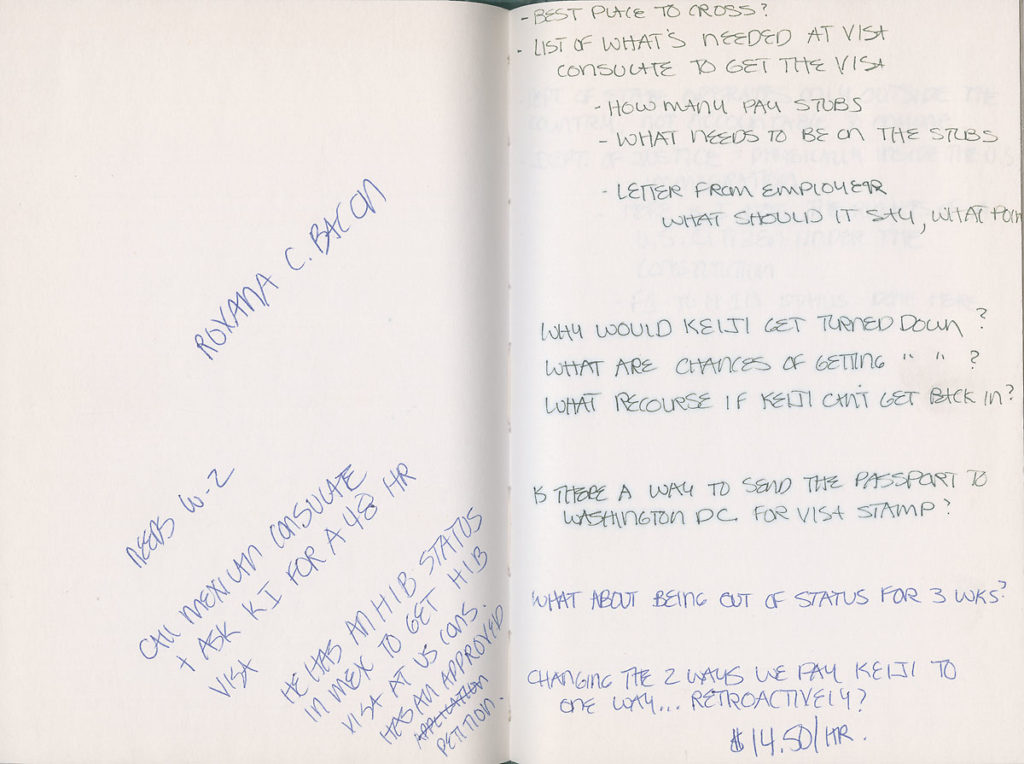 ROXANA C. BACON
NEEDS W-2
CALL MEXICAN CONSULATE
+ ASK KI FOR A 48 HR
VISA
HE HAS AN H1B STATUS
IN MEX TO GET H1B
VISA AT US CONS.
HAS AN APPROVED
APPLICATION
PETITION.
- BEST PLACE TO CROSS?
- LIST OF WHAT'S NEEDED AT VISA
CONSULATE TO GET THE VISA
- HOW MANY PAY STUBS
- WHAT NEEDS TO BE ON THE STUBS
- LETTER FROM EMPLOYER
WHAT SHOULD IT SAY, WHAT FORM
WHY WOULD KEIJI GET TURNED DOWN?
WHAT ARE CHANCES OF GETTING " " ?
WHAT RECOURSE IF KEIJI CAN'T GET BACK IN?
IS THERE A WAY TO SEND THE PASSPORT TO
WASHINGTON DC. FOR VISA STAMP?
WHAT ABOUT BEING OUT OF STATUS FOR 3 WKS?
CHANGING THE 2 WAYS WE PAY KEIJI TO
ONE WAY... RETROACTIVELY?
$14.50/HR.